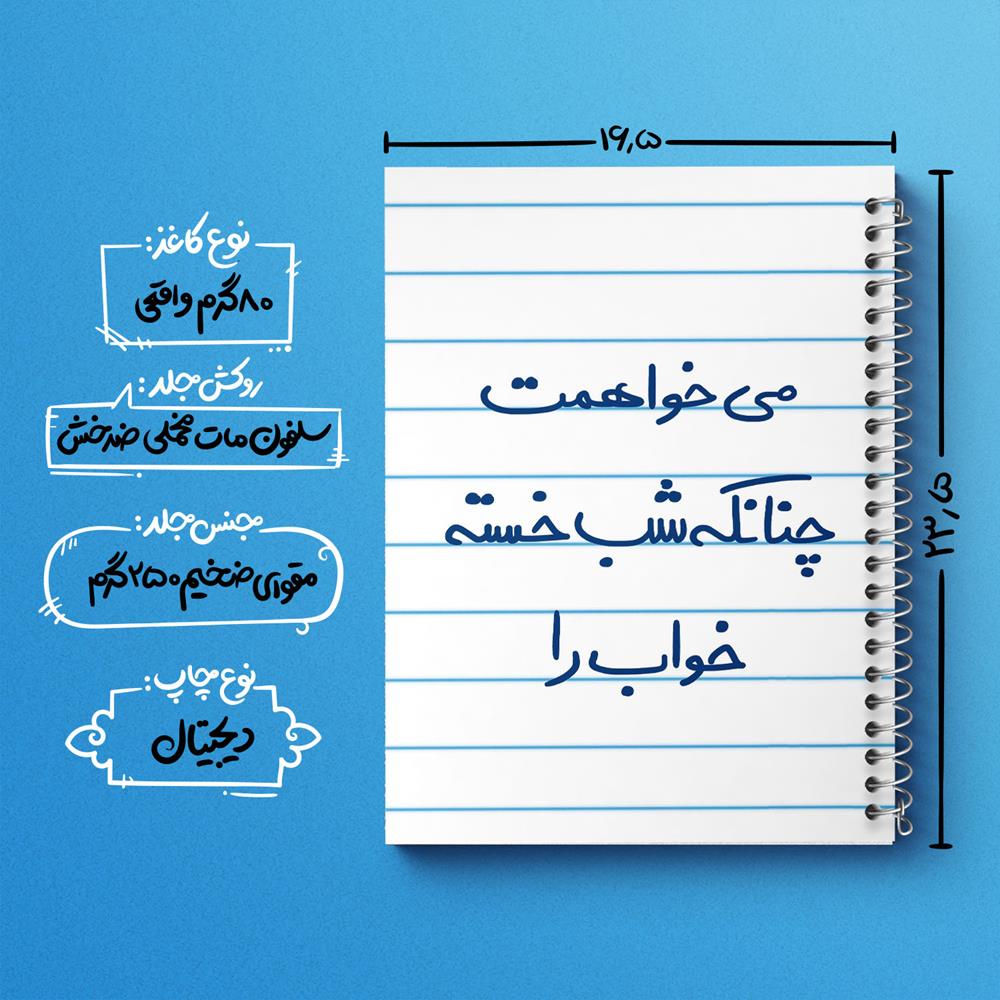 ۱۶,۵
۲۳,۵
می خواهمت
چنانکه شب خسته
خواب را
نوع کاغذ:
۸۰ گرم واقعی
روکش جلد:
سلفون مات مخملی ضدخش
جنس جلد:
مقوای ضخیم ۲۵۰ گرم
نوع چاپ:
دیجیتال